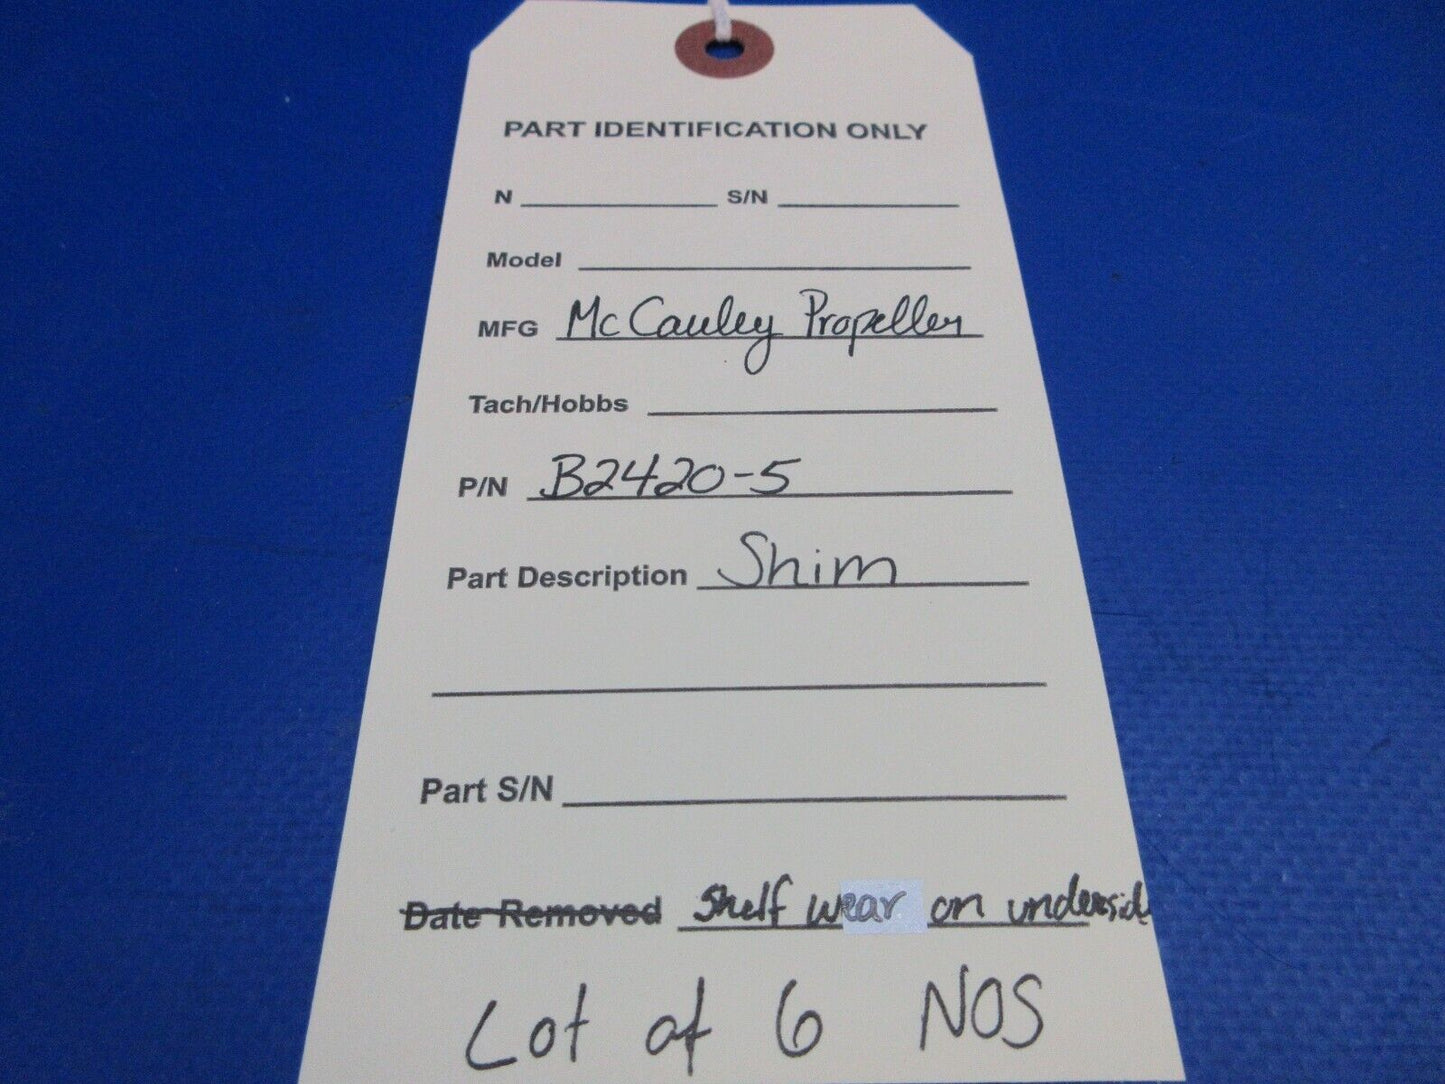 PART IDENTIFICATION ONLY
N S/N
Model
MFG McCauley Propeller
Tach/Hobbs
P/N B2420-5
Part Description Shim
Part S/N
Date Removed Shelf wear on underside
Lot of 6 NOS